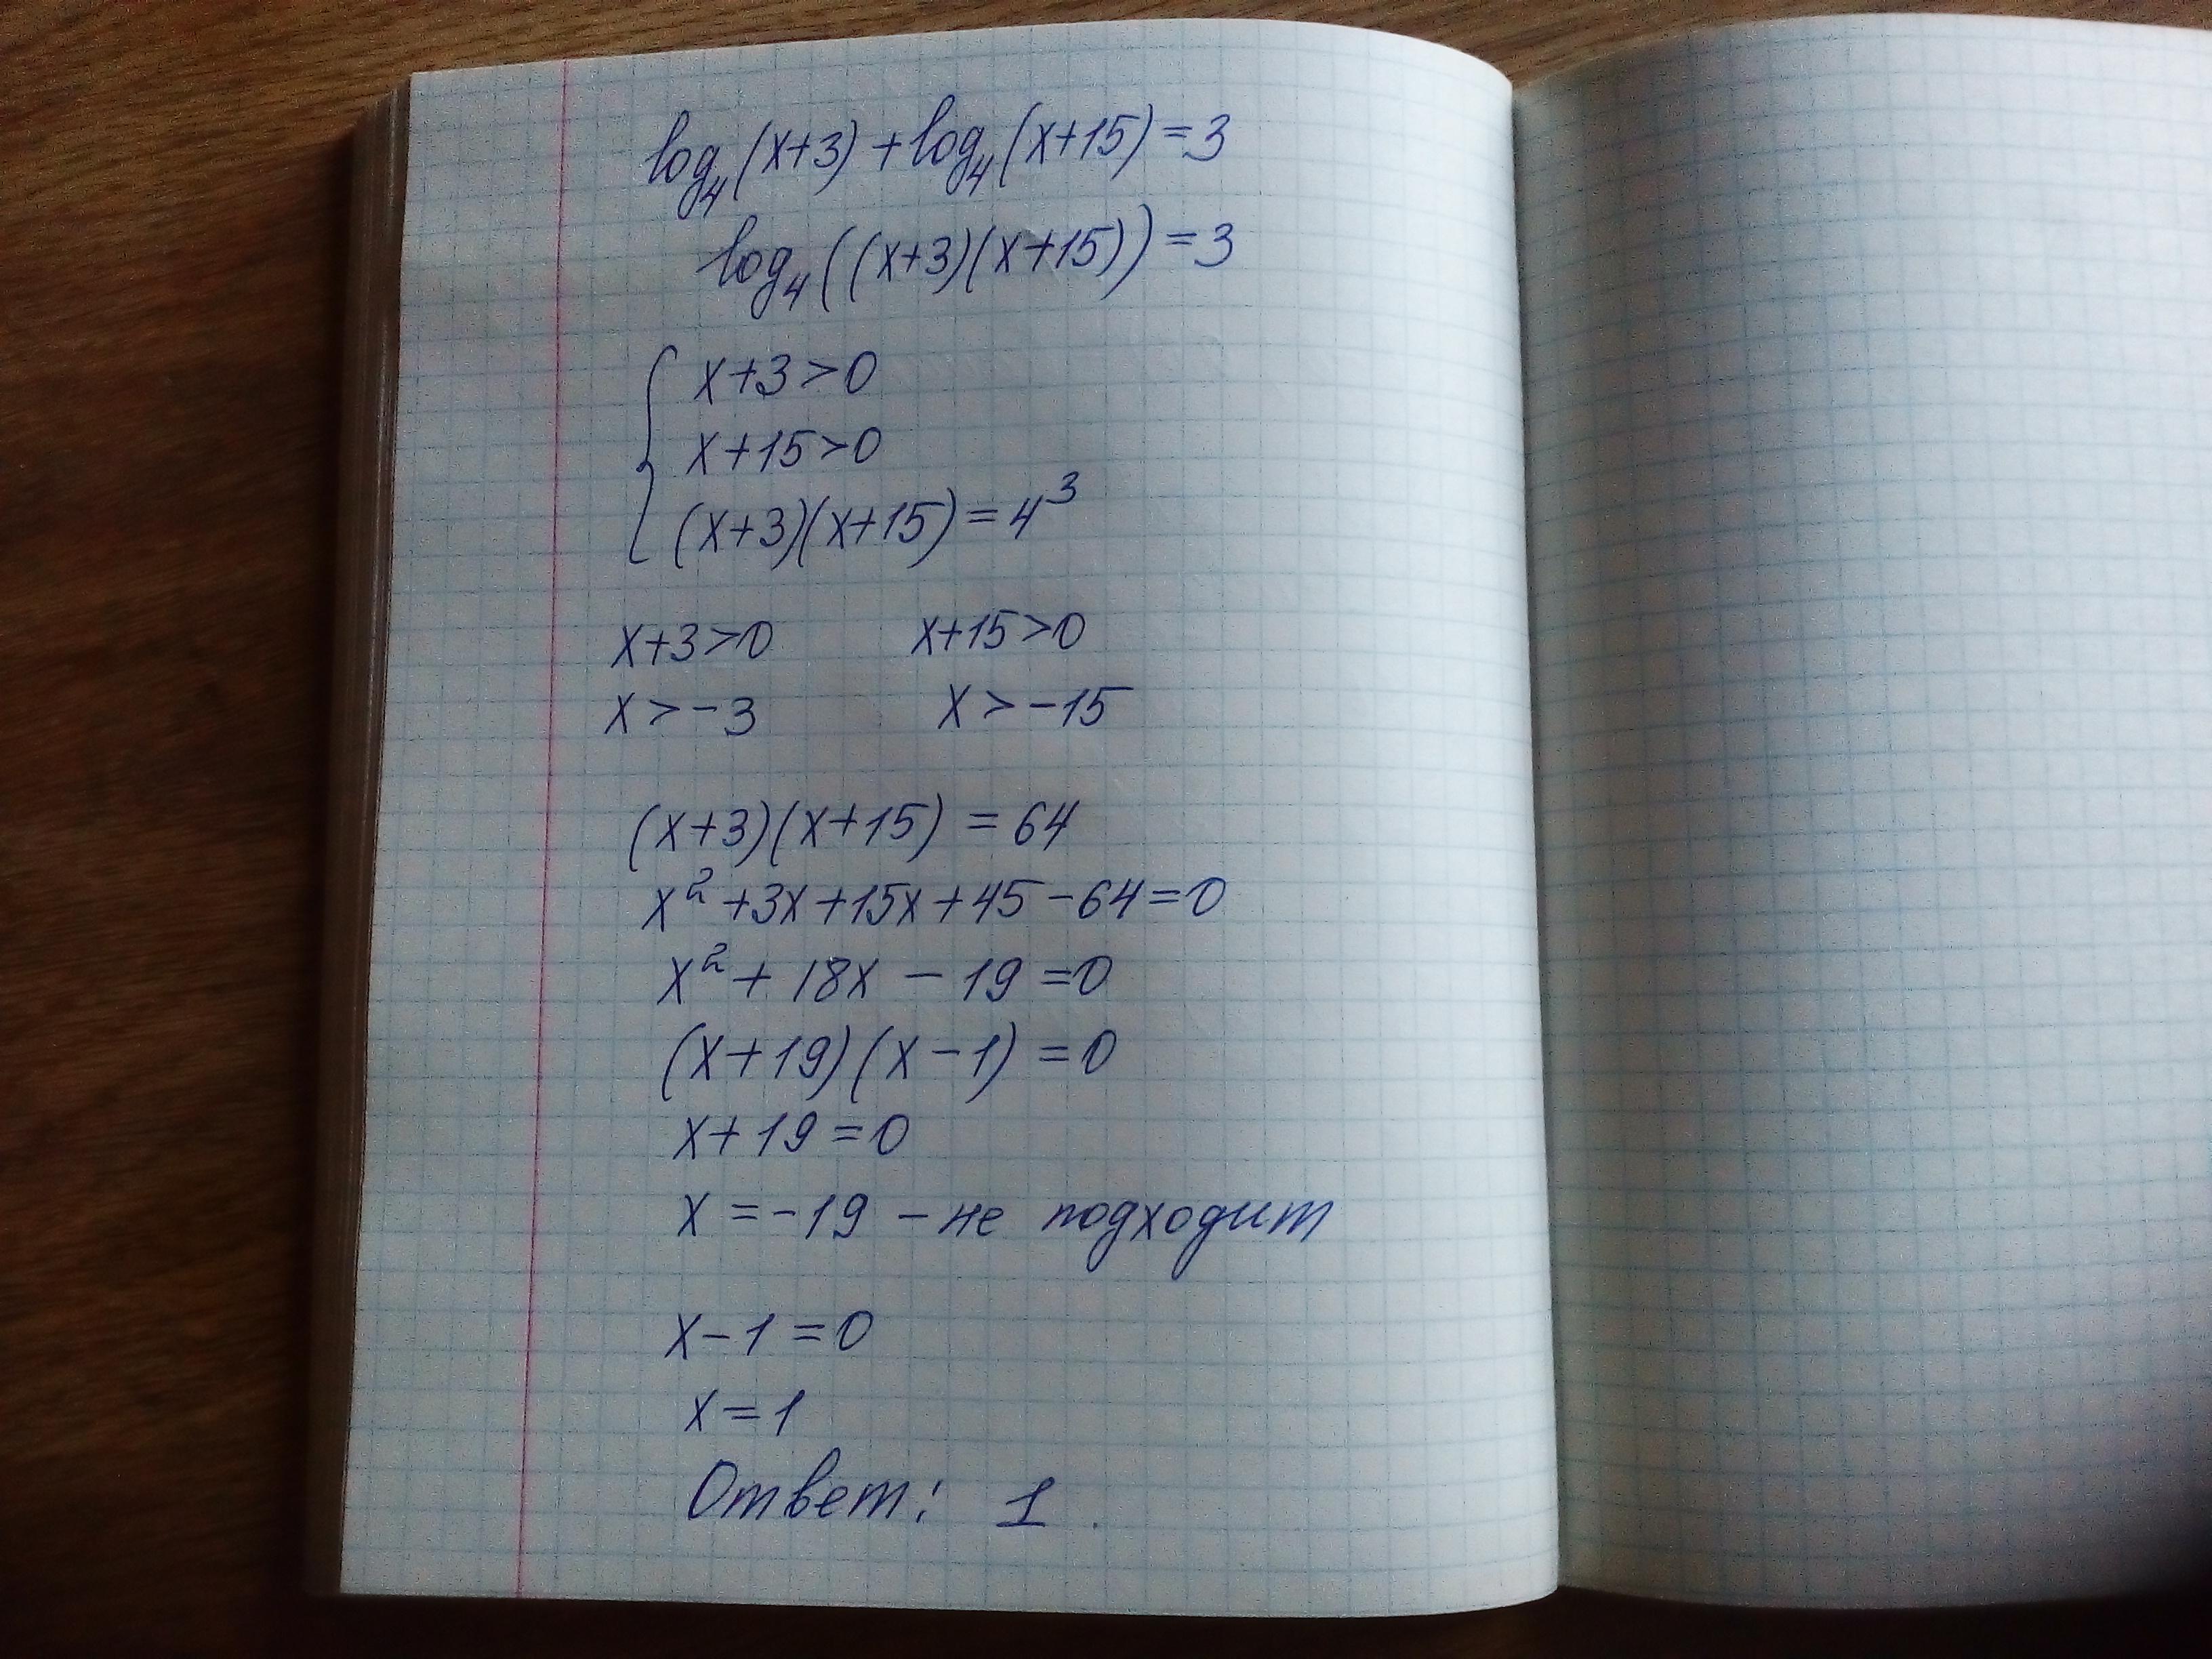 log₄(x+3)+log₄(x+15)=3
log₄((x+3)(x+15))=3
x+3>0
x+15>0
(x+3)(x+15)=4³
x+3>0 x+15>0
x>-3 x>-15
(x+3)(x+15)=64
x²+3x+15x+45-64=0
x²+18x-19=0
(x+19)(x-1)=0
x+19=0
x=-19 - не подходит
x-1=0
x=1
Ответ: 1.